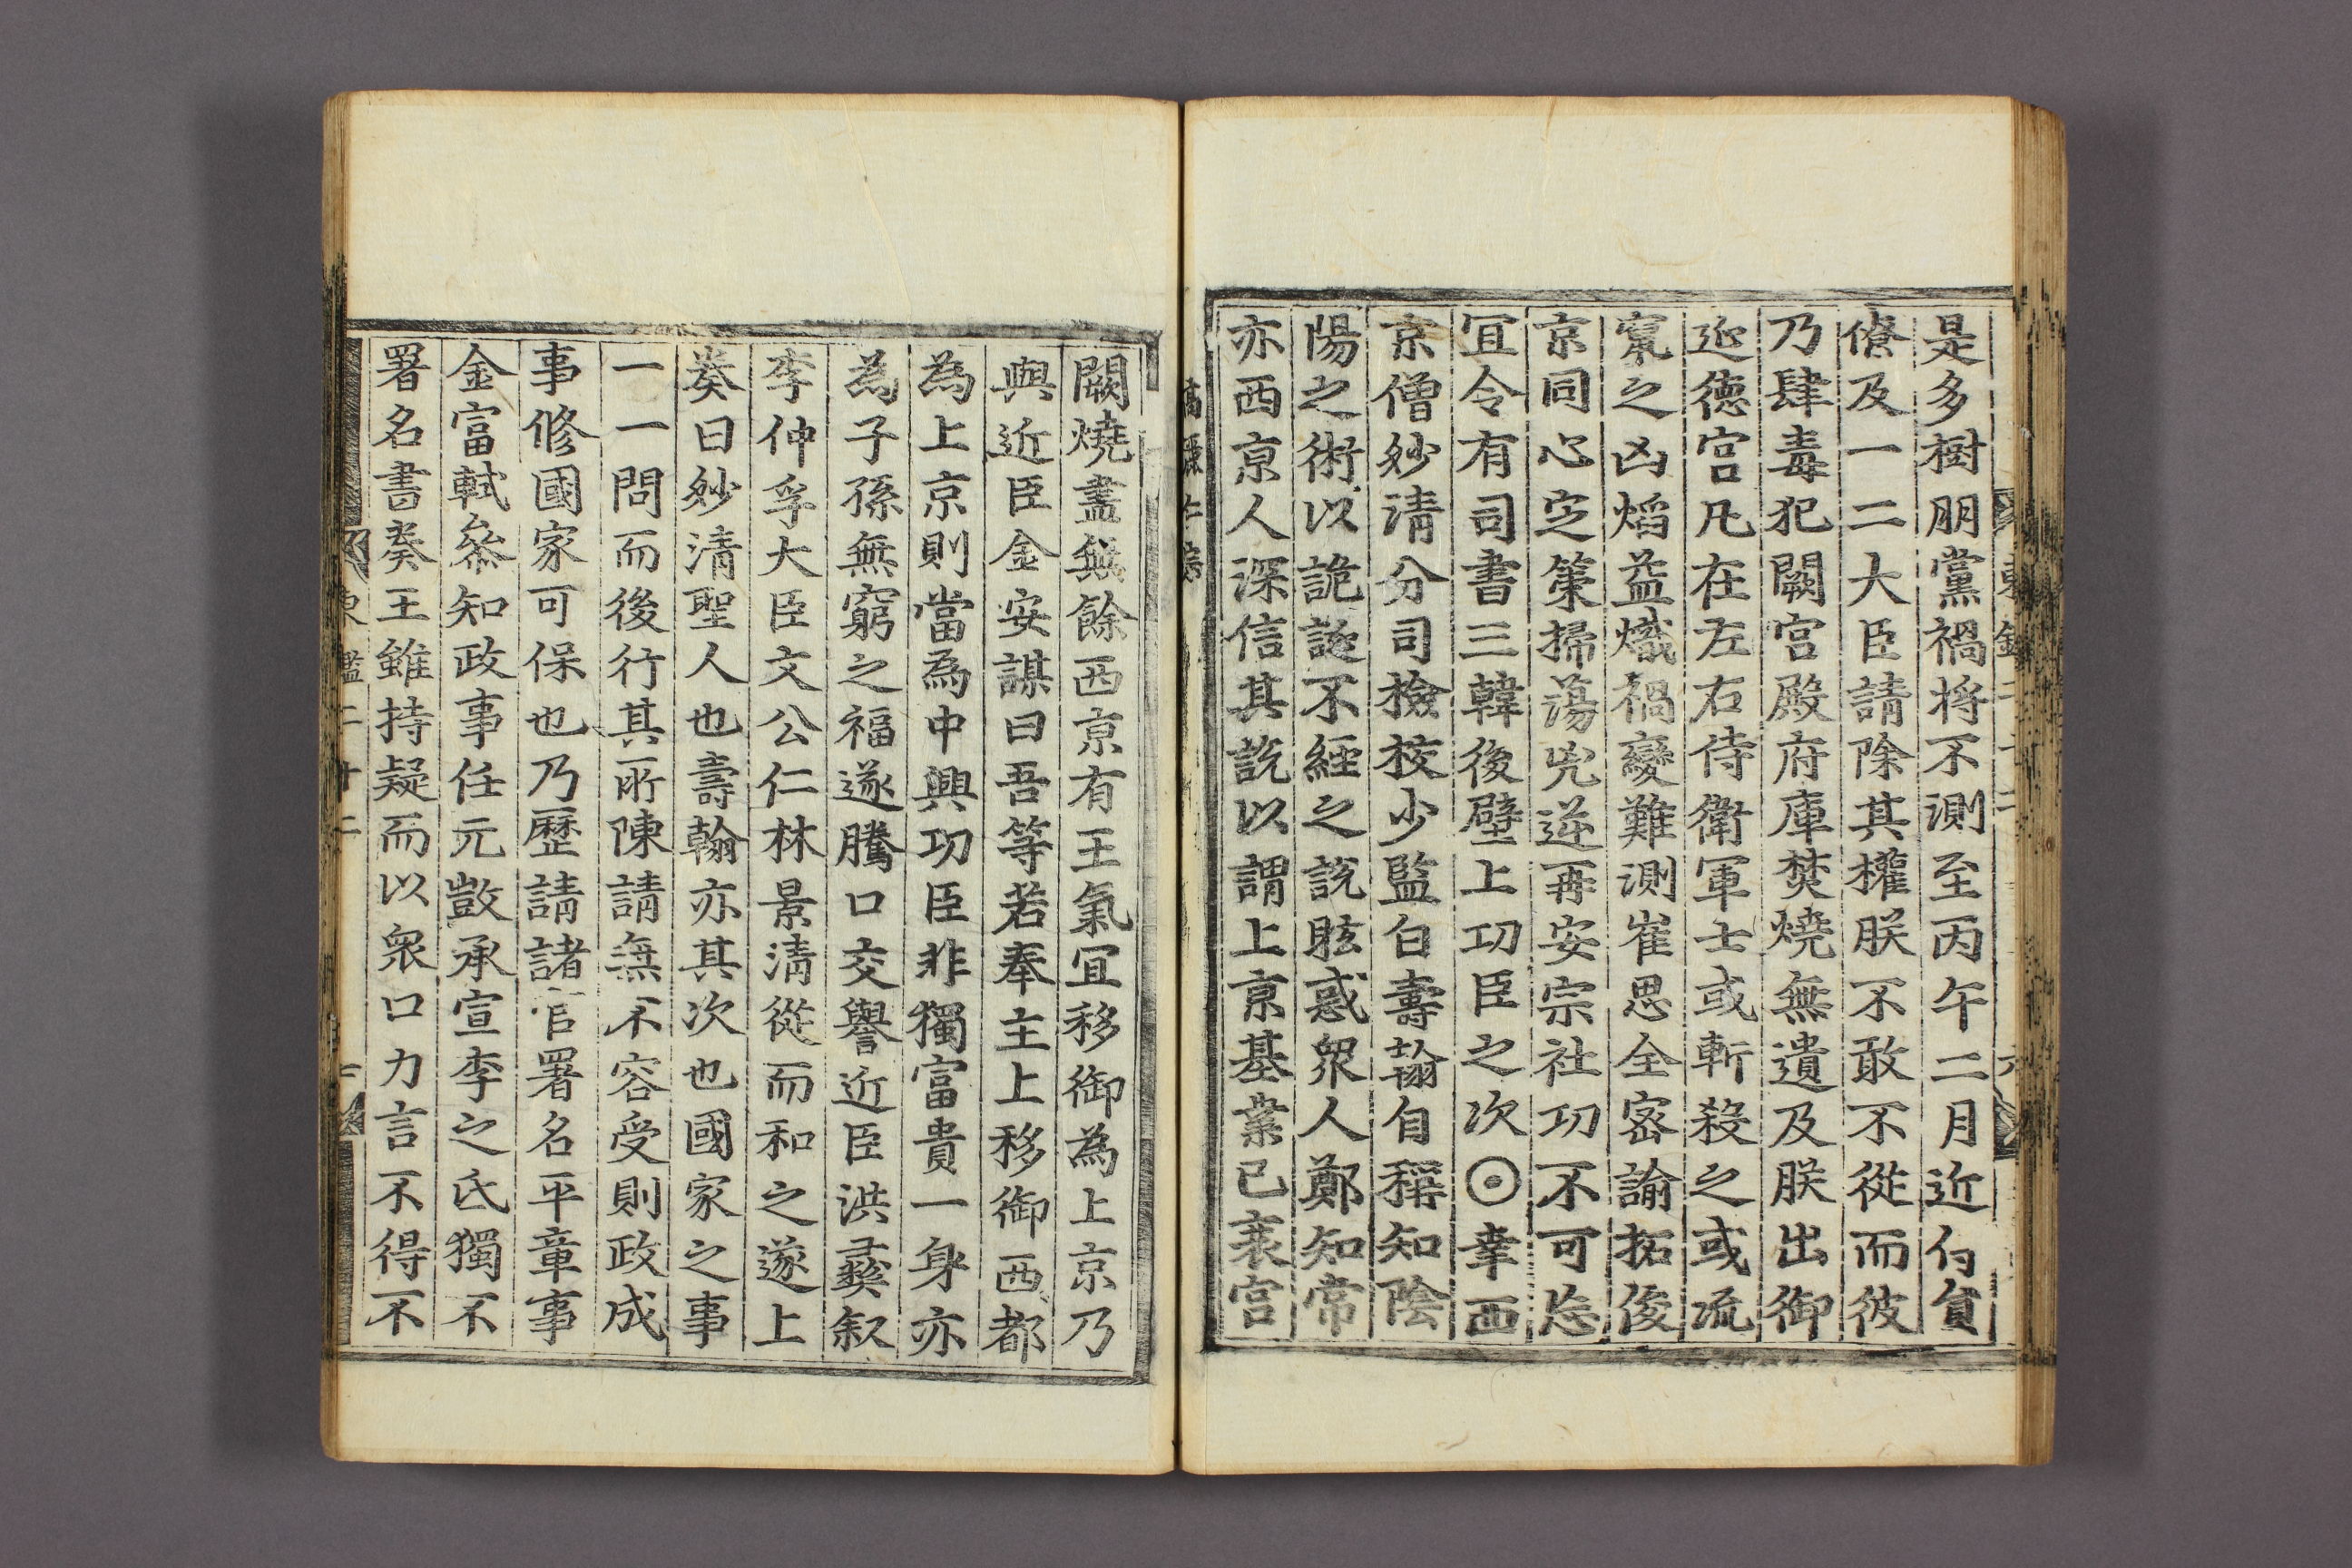 是多樹朋黨禍将不測至丙午二月近臣負
僚及一二大臣請除其權朕不敢不從而彼
乃肆毒犯闕宫殿府庫焚燒無遺及朕出御
延德宫凡在左右侍衛軍士或斬殺之或流
竄之凶熖益熾禍變難測崔思全密諭拓俊
京同心定策掃蕩兇逆再安宗社功不可忘
宜令有司書三韓後壁上功臣之次⊙幸西
京僧妙清分司檢校少監白壽翰自稱知陰
陽之術以詭誕不經之說眩惑衆人鄭知常
亦西京人深信其說以謂上京基業已衰宫
闕燒盡無餘西京有王氣宜移御為上京乃
與近臣金安謀曰吾等若奉主上移御西都
為上京則當為中興功臣非獨富貴一身亦
為子孫無窮之福遂騰口交譽近臣洪彛叙
李仲孚大臣文公仁林景清從而和之遂上
奏曰妙清聖人也壽翰亦其次也國家之事
一一問而後行其所陳請無不容受則政成
事修國家可保也乃歷請諸官署名平章事
金富軾叅知政事任元敱承宣李之氐獨不
署名書奏王雖持疑而以衆口力言不得不
東鑑二十二